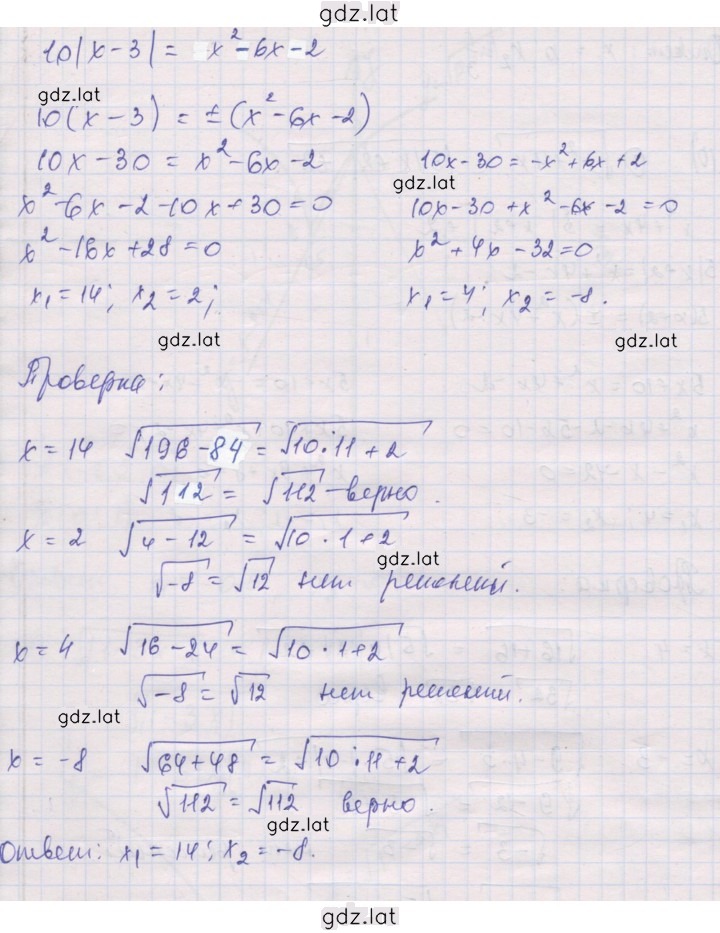 gdz.lat
10|x-3| = x²-6x-2
gdz.lat
10(x-3) = ±(x²-6x-2)
10x-30 = x²-6x-2
10x-30 = -x²+6x+2
gdz.lat
x²-6x-2-10x+30=0
10x-30+x²-6x-2=0
x²-16x+28=0
x²+4x-32=0
x₁=14; x₂=2;
x₁=4; x₂=-8.
gdz.lat
gdz.lat
Проверка:
x=14 √196-84 = √10·11+2
√112 = √112 -верно.
x=2 √4-12 = √10·1+2
gdz.lat
√-8 = √12 нет решений.
x=4 √16-24 = √10·1+2
√-8 = √12 нет решений.
gdz.lat
x=-8 √64+48 = √10·11+2
√112 = √112 верно.
gdz.lat
Ответ: x₁=14; x₂=-8.
gdz.lat